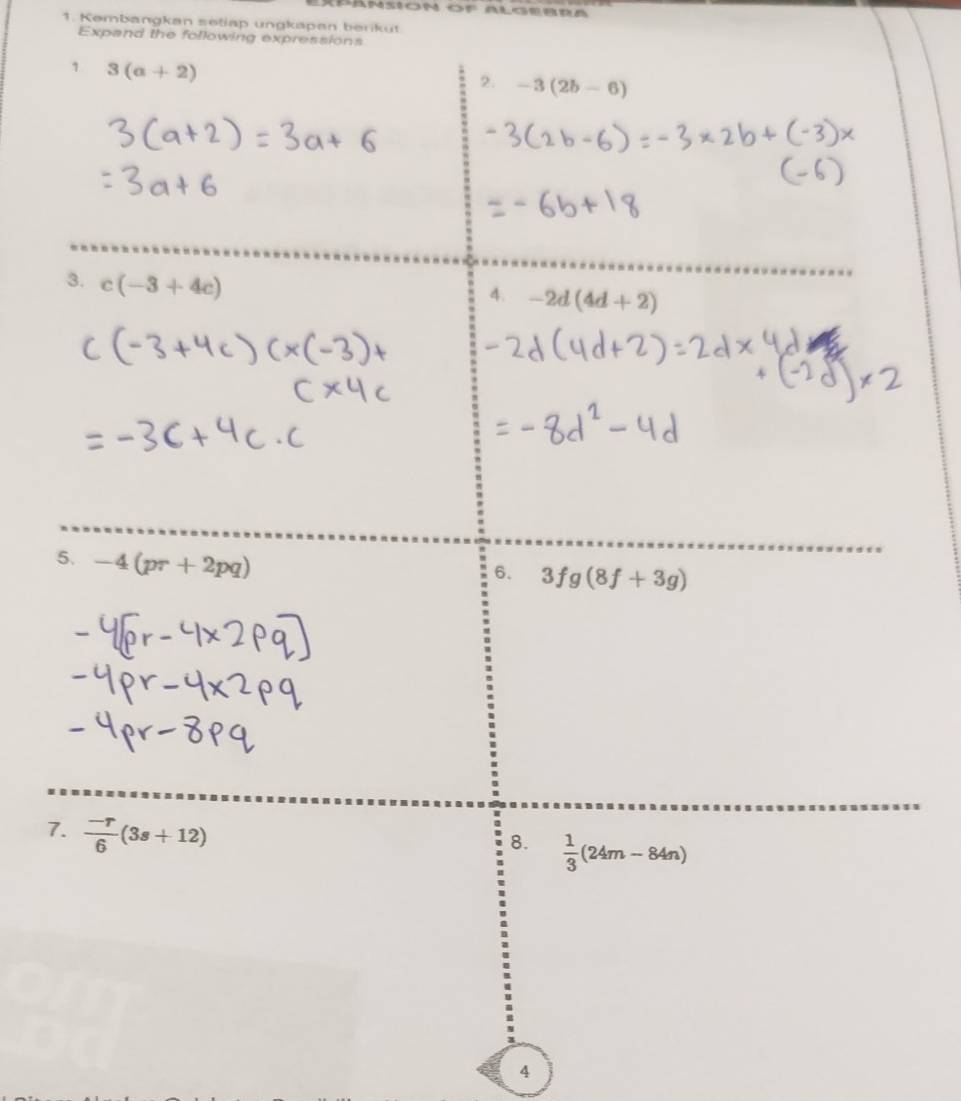 EXPANSION OF ALGEBRA
1. Kembangkan setiap ungkapan berikut
Expand the following expressions
1 3(a + 2)
3(a+2) = 3a+ 6
= 3a+6
2. -3(2b - 6)
-3(2b-6) = -3 × 2b + (-3)×
(-6)
= -6b+18
3. c(-3 + 4c)
c(-3+4c) c×(-3)+
c×4c
= -3c+4c.c
4. -2d(4d + 2)
-2d(4d+2) = 2d× 4d
+ (-2d)×2
= -8d² - 4d
5. -4(pr + 2pq)
-4[pr-4×2pq]
-4pr-4×2pq
-4pr-8pq
6. 3fg(8f + 3g)
7. -r/6 (3s + 12)
8. 1/3 (24m - 84n)
4